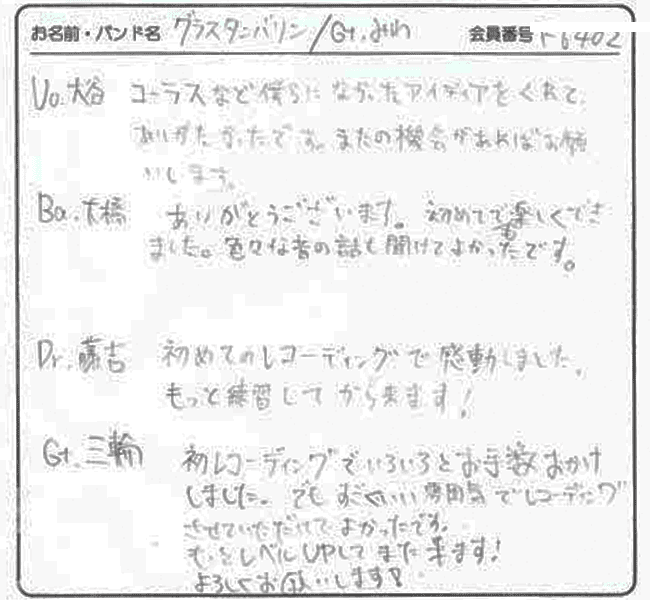 お名前・バンド名 グラスタンバリン/Gt.みわ 会員番号 F6402
Vo.大谷 コーラスなど僕らになかったアイディアをくれて
ありがたかったです。またの機会があればお願
いします。
Ba.大橋 ありがとうございます。初めてでも楽しくでき
ました。色々な音の話も聞けてよかったです。
Dr.藤吉 初めてのレコーディングで感動しました。
もっと練習してから来ます!
Gt.三輪 初レコーディングでいろいろとお手数おかけ
しました。でもすごくいい雰囲気でレコーディング
させていただけてよかったです。
もっとレベルUPしてまた来ます!
よろしくお願いします!